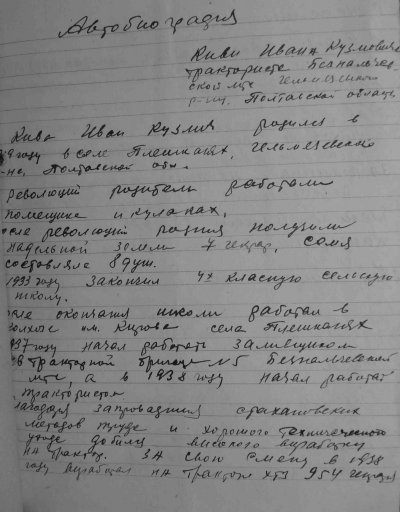 Автобиография
Киви Ивана Кузмовича
тракториста Безпальчев
ской мтс гельмязевского
р-на, Полтавской области
Кива Иван Кузмич родился в
году в селе Плешканях, гельмязевского
-на, Полтавской обл.
революций родители работали
помещике и кулаках.
осле революций родния получили
надельной земли 7 гектар, семя
составляла 8 душ.
1933 году закончил 4х класную сельскую
школу.
сле окончания школи работал в
олхозе им. Кирова села Плешканях
937 году начал работать заливщиком
в тракторной бригаде №5 Безпальчевской
мтс, а в 1938 году начал работать
трактористом
лагодаря запровадния стахановских
методов труда и хорошого технического
ухода добился високого виработку
на трактор. За свою смену в 1938
году виработал на тракторе ХТЗ 954 гектара